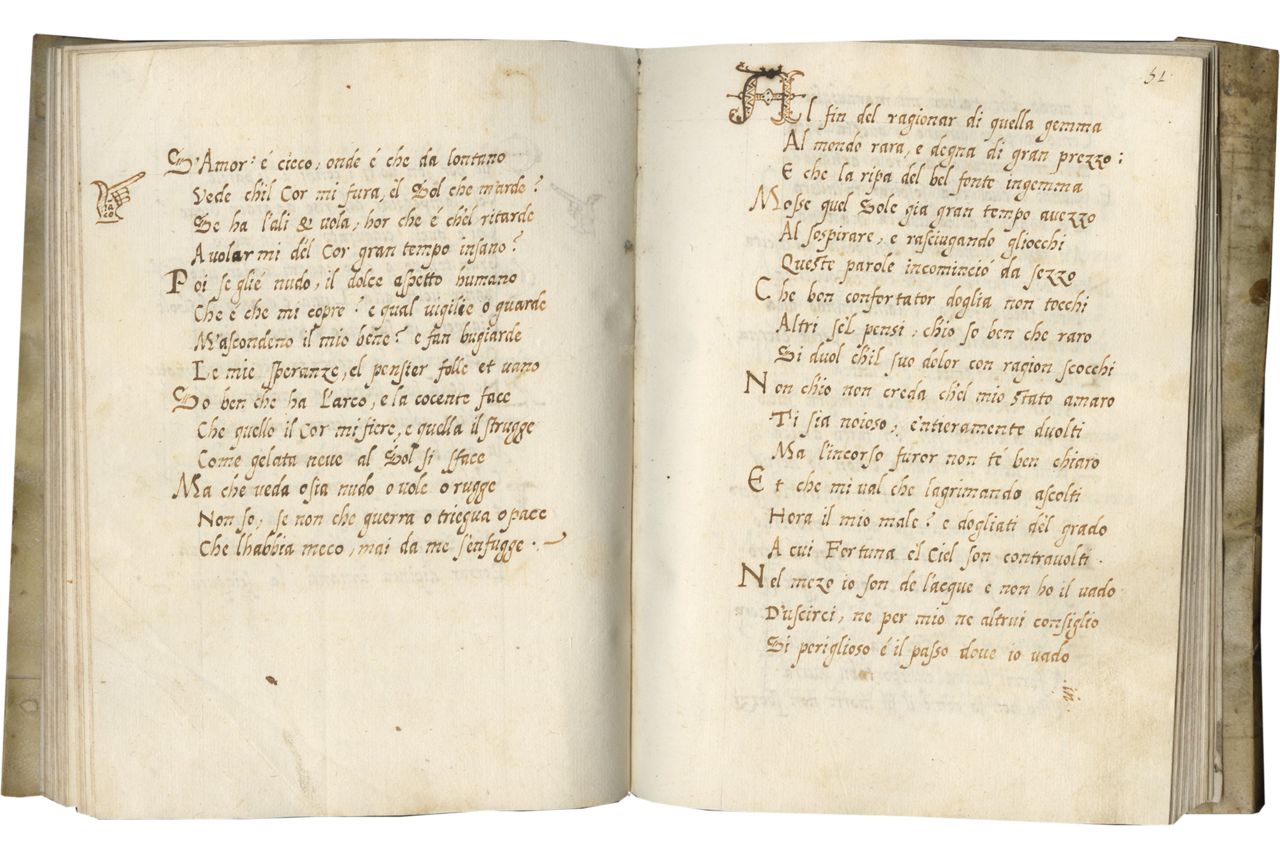 S'Amor' é cieco, onde é che da lontano
Vede ch'il Cor mi fura, el Sol che m'arde?
Se ha l'ali & vola, hor che é ch'el ritarde
A volar mi dél Cor gran tempo insano?
Poi se glié nudo, il dolce aspetto humano
Che é che mi copre? e qual vigilie o guarde
M'ascondeno il mio bene? e fan bugiarde
Le mie speranze, el pensier folle et vano
So ben che ha l'arco, e la cocente face
Che quello il Cor mi fiere, e quella il strugge
Come gelata neve al Sol si sface
Ma che veda o sia nudo o vole o rugge
Non so, se non che guerra o triegua o pace
Che l'habbia meco, mai da me s'enfugge.
51
Al fin del ragionar di quella gemma
Al mondo rara, e degna di gran prezzo:
E che la ripa del bel fonte ingemma
Mosse quel Sole gia gran tempo avezzo
Al sospirare, e rasciugando gliocchi
Queste parole incominciò da sezzo
Che ben confortator doglia non tocchi
Altri sel pensi, ch'io so ben che raro
Si duol ch'il suo dolor con ragion scocchi
Non ch'io non creda ch'el mio stato amaro
Ti sia noioso, e'ntieramente duolti
Ma l'incorso furor non t'é ben chiaro
Et che mi val che lagrimando ascolti
Hora il mio male? e dogliati dél grado
A cui Fortuna el Ciel son contravolti.
Nel mezo io son de l'acque e non ho il vado
D'uscirci, ne per mio ne altrui consiglio
Si periglioso é il passo dove io vado
in